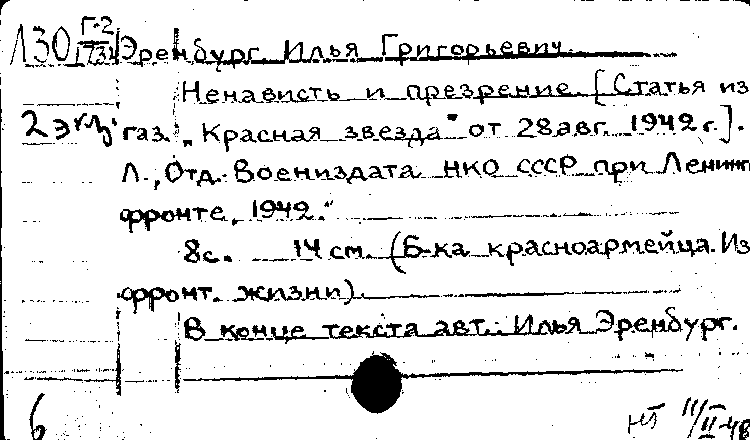 130 Г-2
173
Эренбург, Илья Григорьевич.
Ненависть и презрение. [Статья из
2 экз. газ. „Красная звезда" от 28 авг. 1942 г.].
Л., Отд. Воениздата НКО СССР при Ленинг
фронте, 1942.
8с. 14 см. (Б-ка красноармейца. Из
фронт. жизни).
В конце текста авт.: Илья Эренбург.
6
НТ 11/II-48